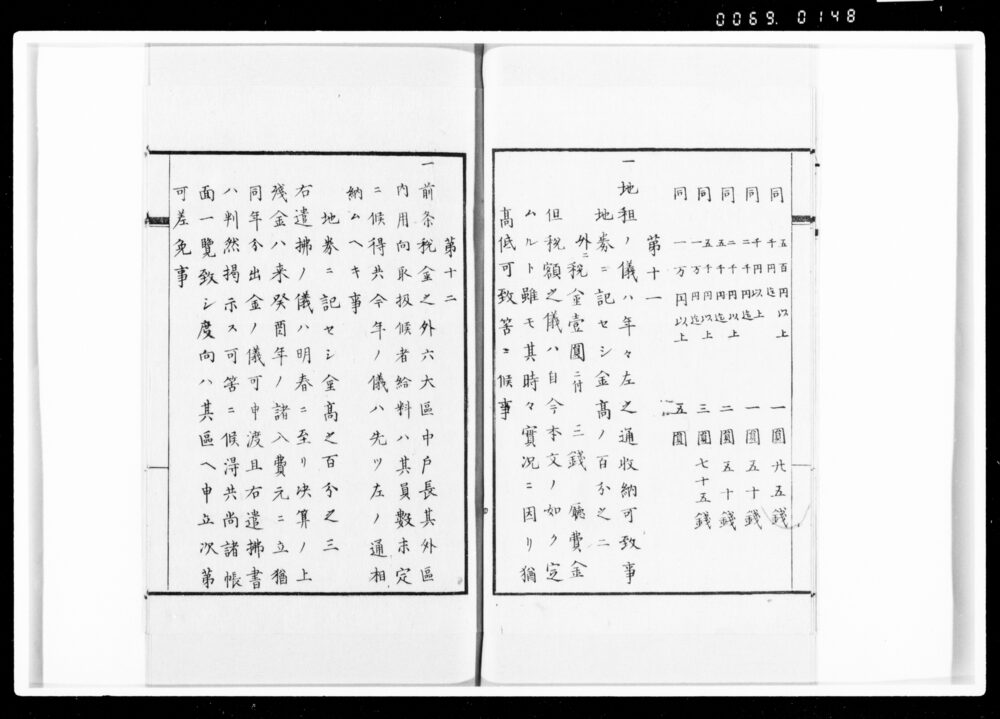 0069. 0148
同 五百円以上 千円迄 一圓廿五錢
同 千円以上 二千円迄 一圓五十錢
同 二千円以上 五千円迄 二圓五十錢
同 五千円以上 一万円迄 三圓七十五錢
同 一万円以上 五圓
第十一
一地租ノ儀ハ年々左之通收納可致事
地券ニ記セシ金高ノ百分之二
外ニ税金壹圓ニ付 三錢 廳費金
但税額之儀ハ自今本文ノ如ク定
ムルト雖モ其時々實況ニ因リ猶
高低可致筈ニ候事
第十二
一前条税金之外六大區中戸長其外區
内用向取扱候者給料ハ其員數未定
ニ候得共今年ノ儀ハ先ツ左ノ通相
納ムヘキ事
地券ニ記セシ金高之百分之三
右遣拂ノ儀ハ明春ニ至リ决算ノ上
残金ハ来癸酉年ノ諸入費元ニ立猶
同年分出金ノ儀可申渡且右遣拂書
ハ判然掲示ス可筈ニ候得共尚諸帳
面一覽致シ度向ハ其區ヘ申立次第
可差免事